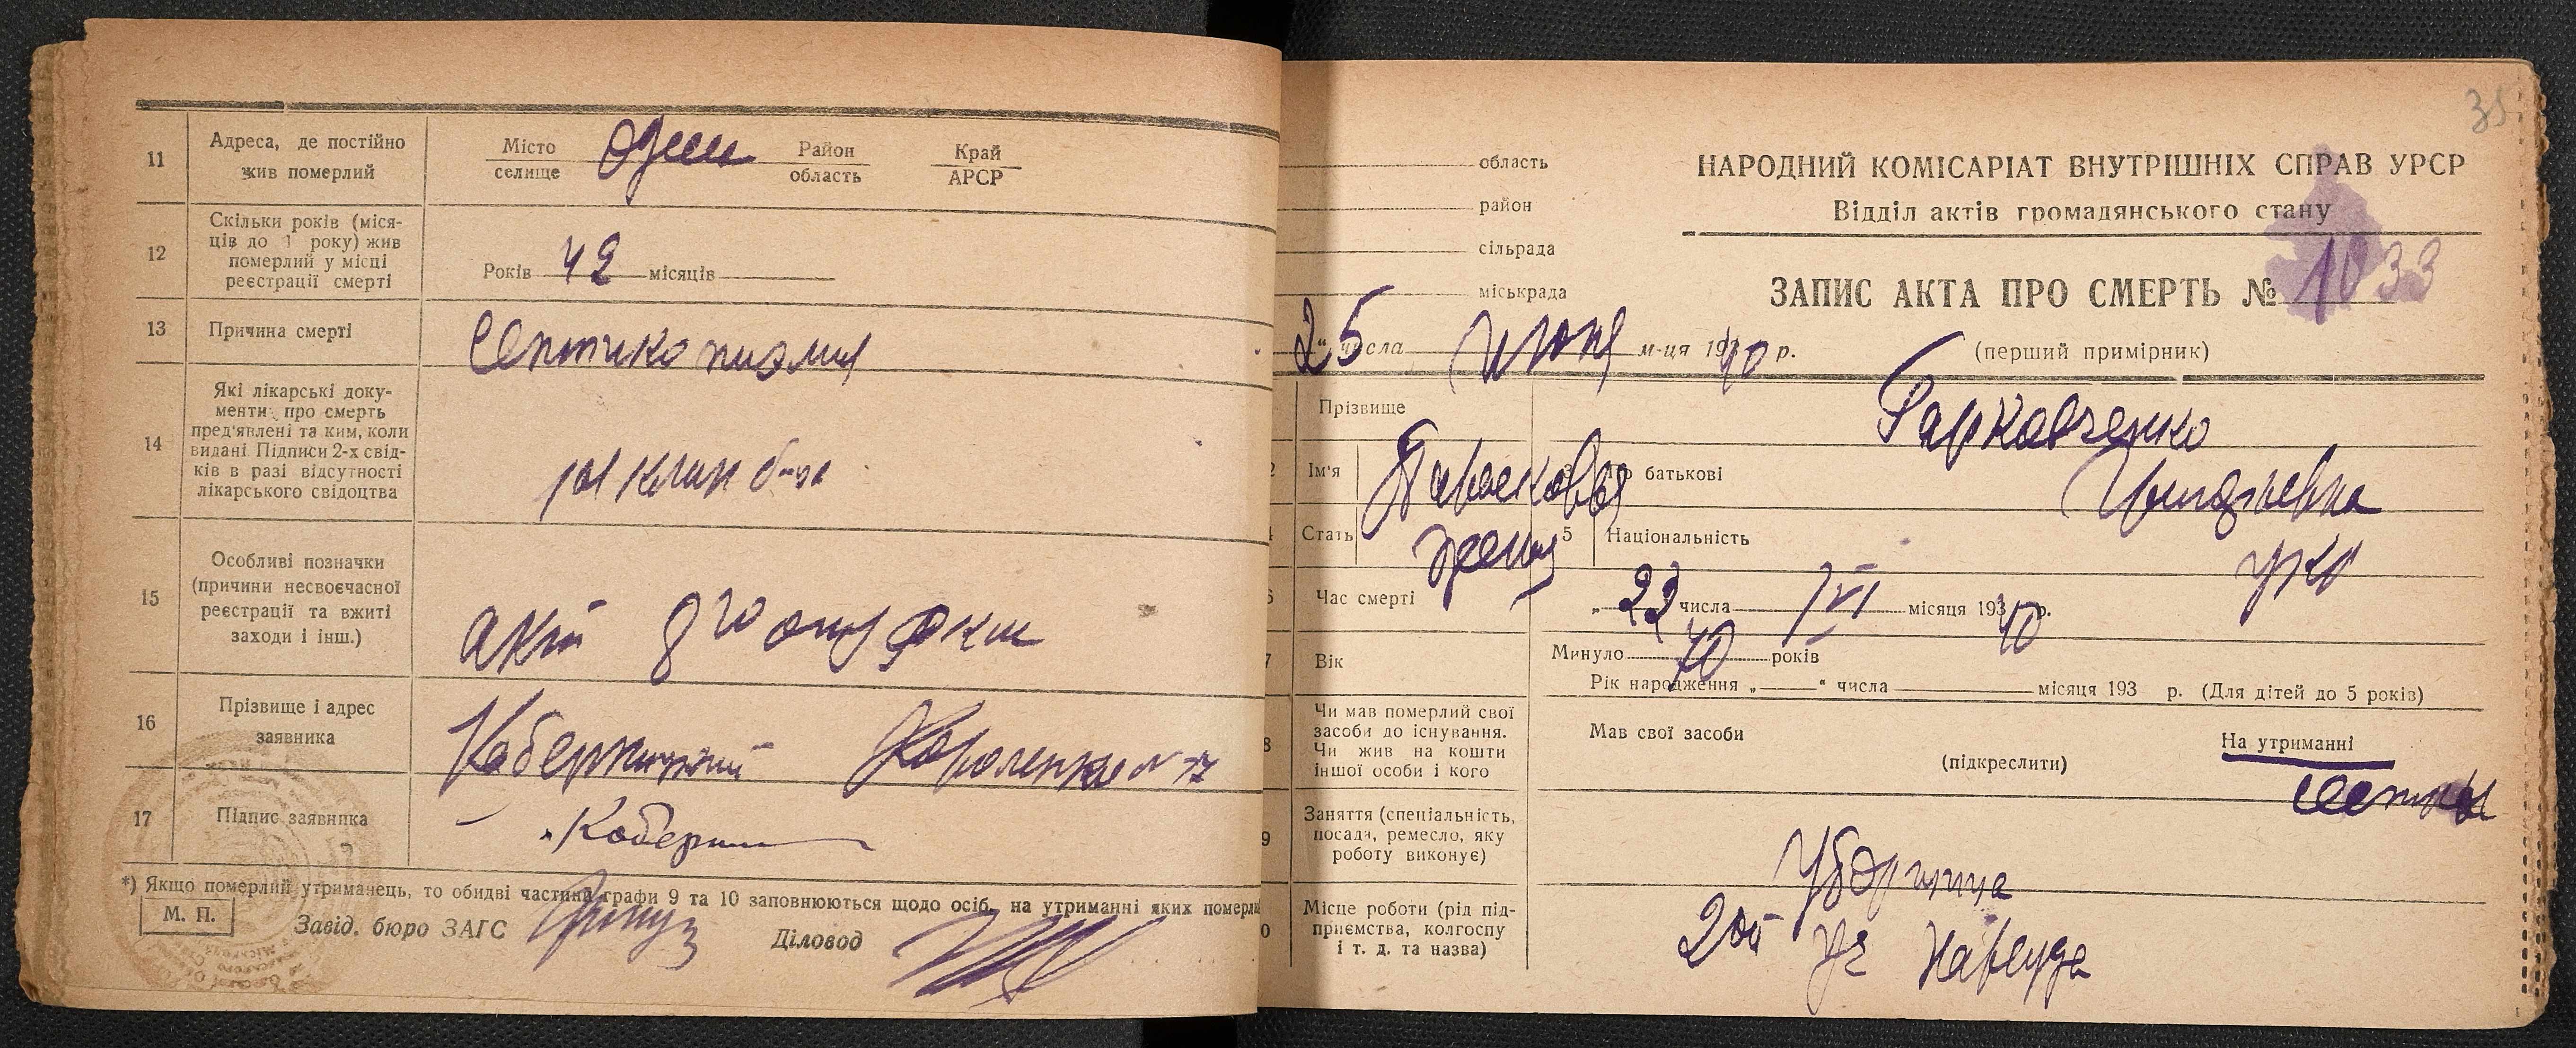 11 Адреса, де постійно
жив померлий
Місто
селище
Одесса
Район
область
Край
АРСР
12 Скільки років (міся-
ців до 1 року) жив
померлий у місці
реєстрації смерті
Років 42 місяців
13 Причина смерті
Септикопиэмия
14 Які лікарські доку-
менти про смерть
пред'явлені та ким, коли
видані Підписи 2-х свід-
ків в разі відсутності
лікарського свідоцтва
клин б-ца
15 Особливі позначки
(причини несвоєчасної
реєстрації та вжиті
заходи і інш.)
16 Прізвище і адрес
заявника
17 Підпис заявника
*) Якщо померлий утриманець, то обидві частини графи 9 та 10 заповнюються щодо осіб, на утриманні яких померли
М. П.
Завід. бюро ЗАГС
Діловод
35
область
район
сільрада
міськрада
НАРОДНИЙ КОМІСАРІАТ ВНУТРІШНІХ СПРАВ УРСР
Відділ актів громадянського стану
ЗАПИС АКТА ПРО СМЕРТЬ № 1033
25 числа июня м-ця 1940 р.
(перший примірник)
Прізвище
Гарковченко
2 Ім'я Парасковья 3 По батькові
4 Стать жен 5 Національність укр
6 Час смерті
„ 23 числа VI місяця 1940 р.
7 Вік
Минуло 70 років
Рік народження „ “ числа місяця 193 р. (Для дітей до 5 років)
8 Чи мав померлий свої
засоби до існування.
Чи жив на кошти
іншої особи і кого
Мав свої засоби
(підкреслити)
На утриманні
сестры
9 Заняття (спеціальність,
посада, ремесло, яку
роботу виконує)
Уборщица
10 Місце роботи (рід під-
приємства, колгоспу
і т. д. та назва)
2ой уч Нарсуда